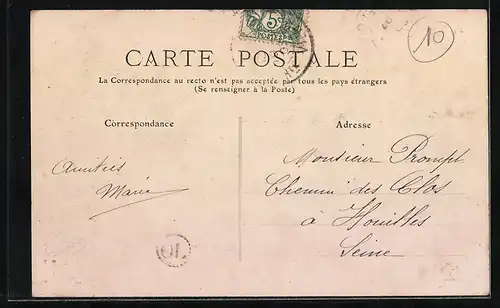 5c
10
CARTE POSTALE
La Correspondance au recto n'est pas acceptée par tous les pays étrangers
(Se renseigner à la Poste)
Correspondance
Adresse
Amitiés
Marie
Monsieur Prompt
Chemin des Clos
à Houilles
Seine